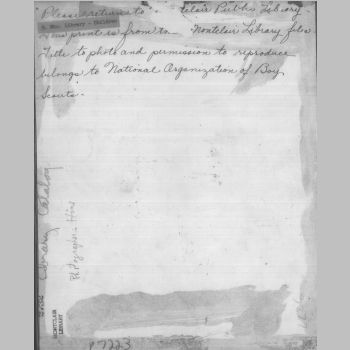 Please return to Montclair Public Library
This print is from the Montclair Library files
Title to photo and permission to reproduce
belongs to National Organization of Boy
Scouts.
Library Catalog
Photographer - Hine
MONTCLAIR
LIBRARY
P 7223